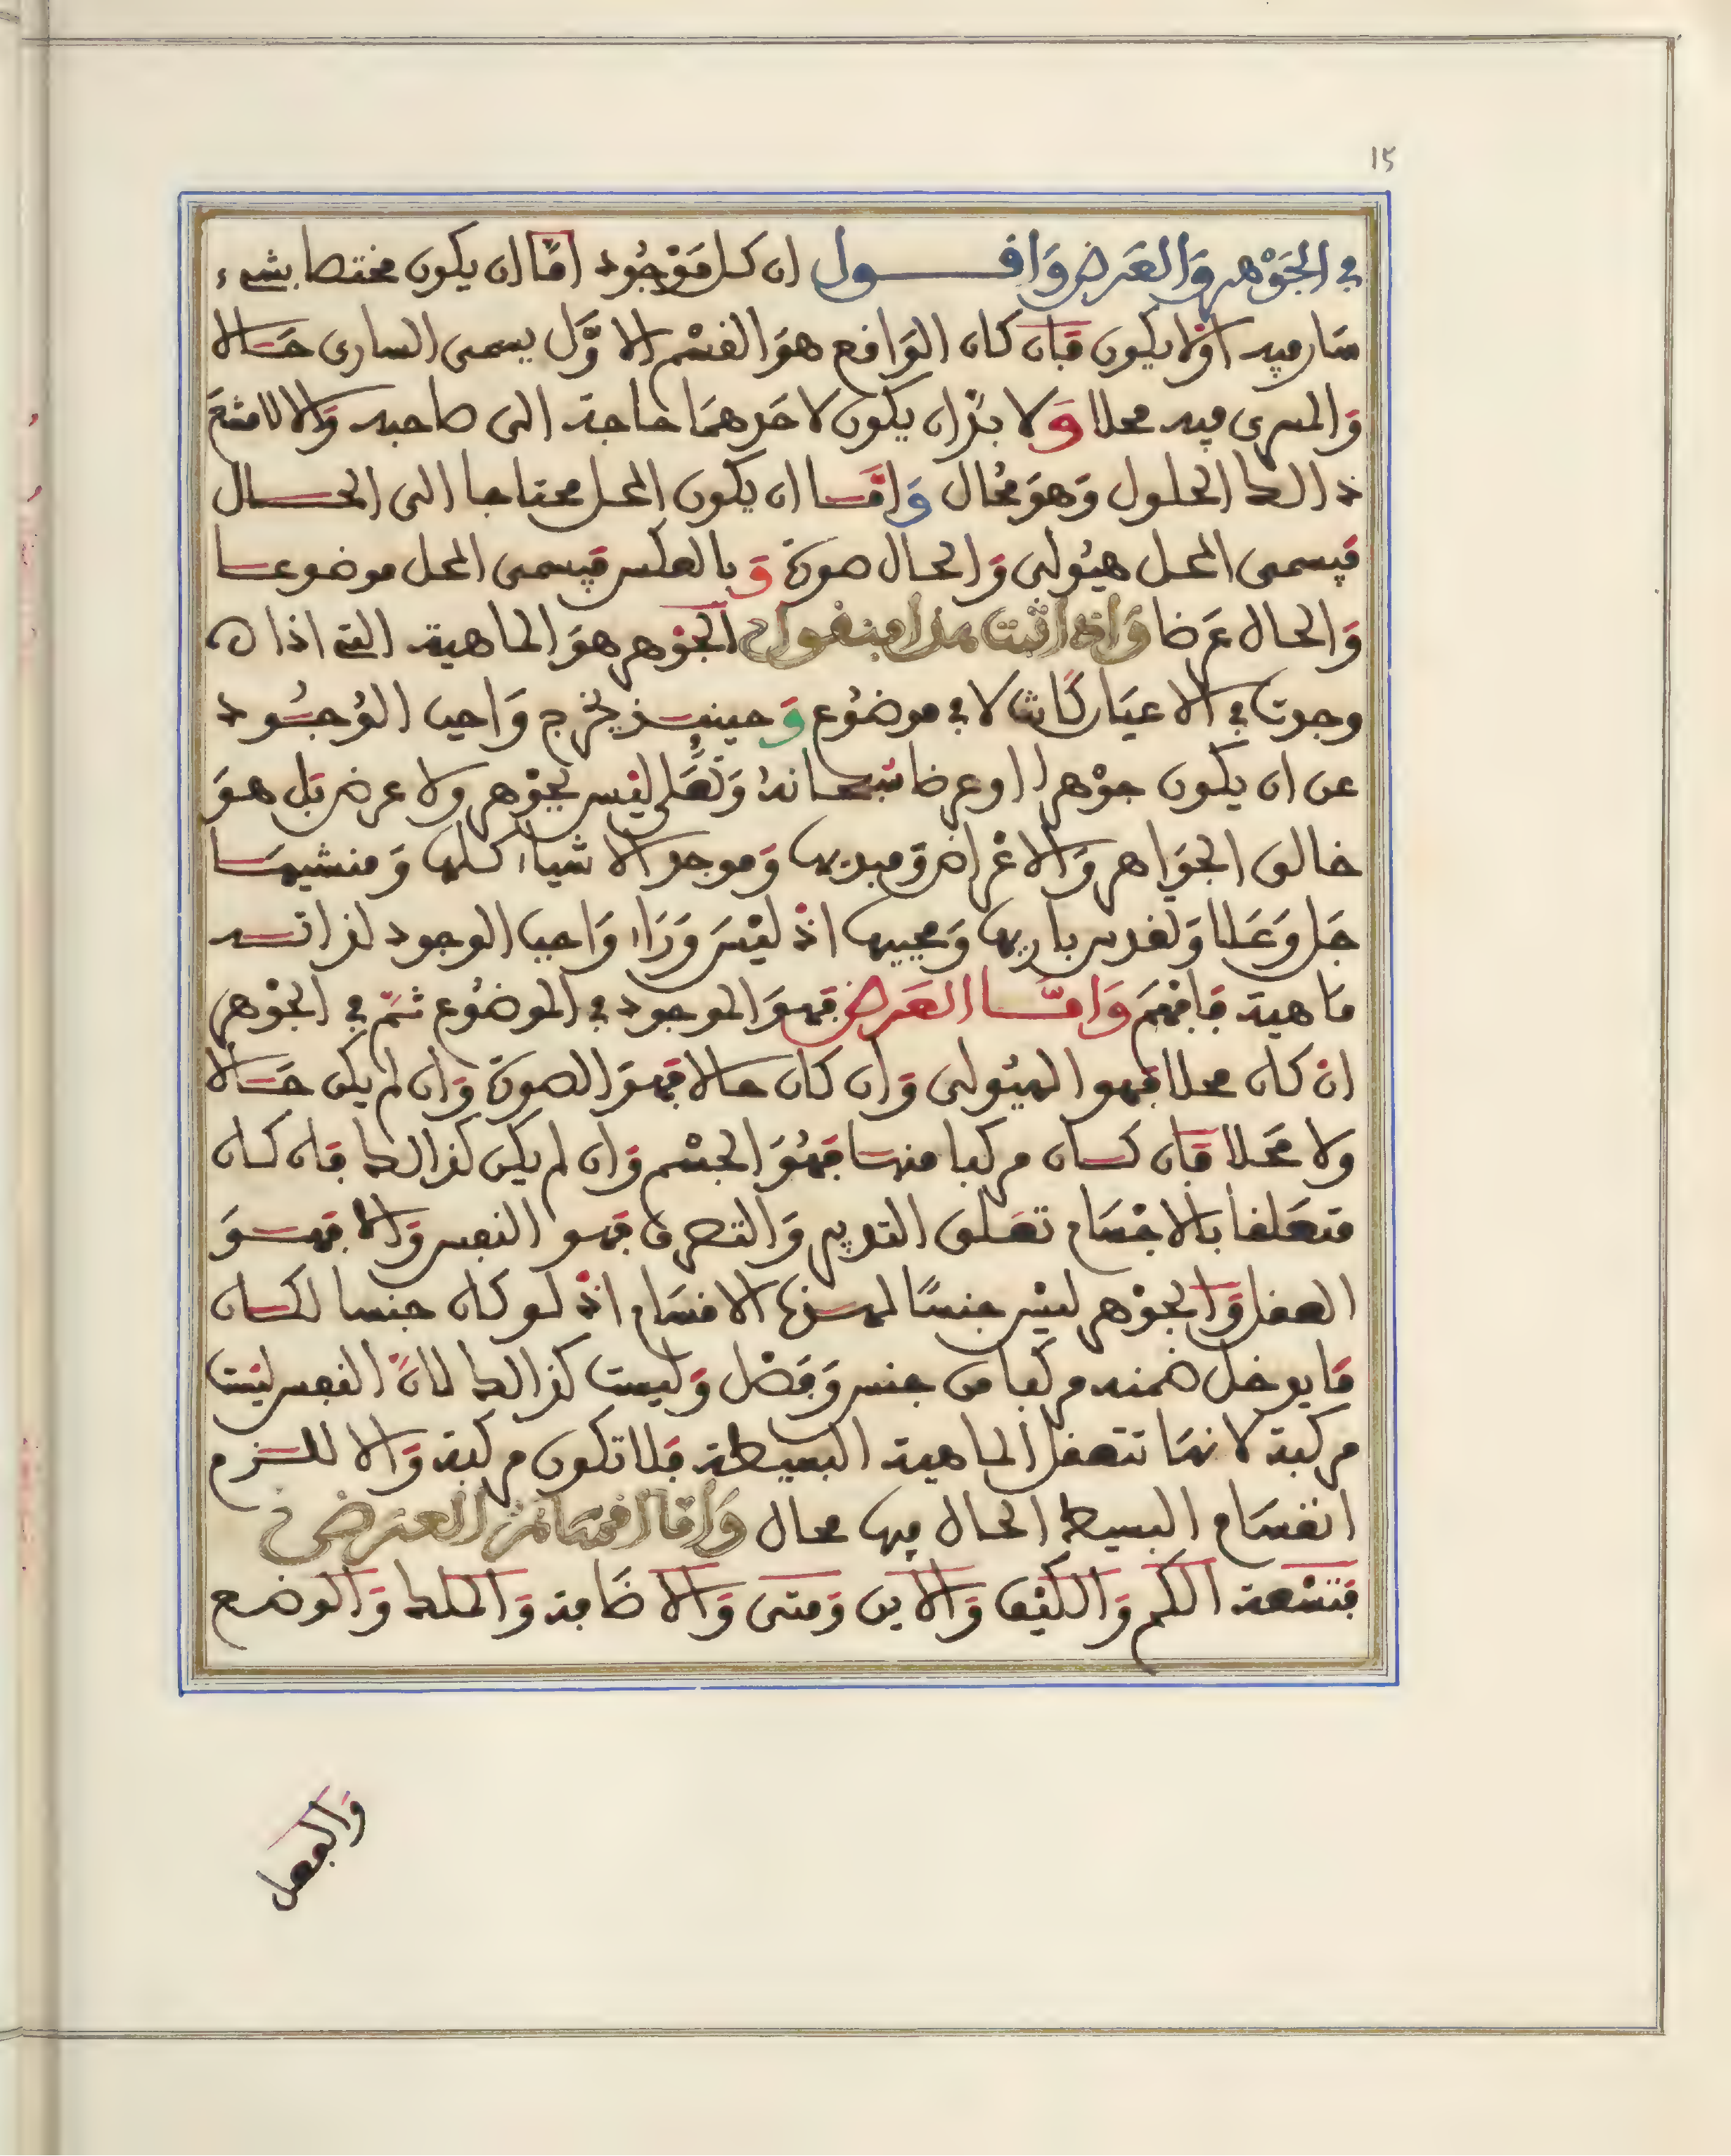 ١٥
في الجَوْهر وَالعَرض وَاقول ان كل مَوْجُود امّا ان يكون مختصا بشيء
سَار فيه اوْلا يكون فَان كان الوَاقع هوَ القسْم الاوَّل يسمى السارى حَالا
وَالمسرى فيه محلا وَلا بدّ ان يكون لاحَدهمَا حاجة الى صاحبه وَالا لامتنعَ
ذالك الحلول وَهوَ مُحَال وَامَّا ان يكون المحل محتاجا الى الحال
فيسمى المحل هيُولى وَالحال صورة وَبالعكس فيسمى المحل موضوعا
وَالحال عَرضا وَاذا اثبت هذا فنقول الجَوْهر هوَ الماهية التي اذا
وجدت في الاعيَان كَانت لا في موضُوع وَحينئذ يخرج وَاجب الوُجُود
عن ان يكون جوْهرا او عرضا سبحانهُ وَتَعَلى ليْس بجوْهر ولا عرض بَل هوَ
خالق الجوَاهر وَالاعْرَاض وَمبديها وَموجد الاشياء كلها وَمنشيهَا
جَل وَعَلا وَتقدس باريها وَمحييها اذْ ليْسَ وَرَاء وَاجب الوجود لذاته
مَاهية فَافهَم وَامَّا العَرض فهوَ الموجود في الموضُوع ثمَّ في الجوْهر
انْ كان محلا فهو الهيُولى وَان كان حالا فهوَ الصورة وَان لم يكن حَالا
ولا محَلا فَان كان مركبا منها فهُوَ الجسْم وَان لم يكن كذالك فان كان
متعَلقا بالاجْسَام تعَلق التدبير وَالتصرف فهو النفس وَالا فهوَ
العقل وَالجوْهر ليْس جنسًا لهذه الاقسَام اذْ لو كان جنسا لكان
مَا يدخل ضمنه مركبا من جنس وَفصْل وَليست كذالك لانَّ النفس ليْست
مركبة لانهَا تتعقل الماهية البسيطة فَلا تكون مركبة وَالا للزم
انقسَام البسيط الحال فيها محال وَامَّا اقسَام العرَض
فتسْعة الكم وَالكيْف وَالاين وَمتى وَالاضَافة وَالملك وَالوضع
وَالفعل